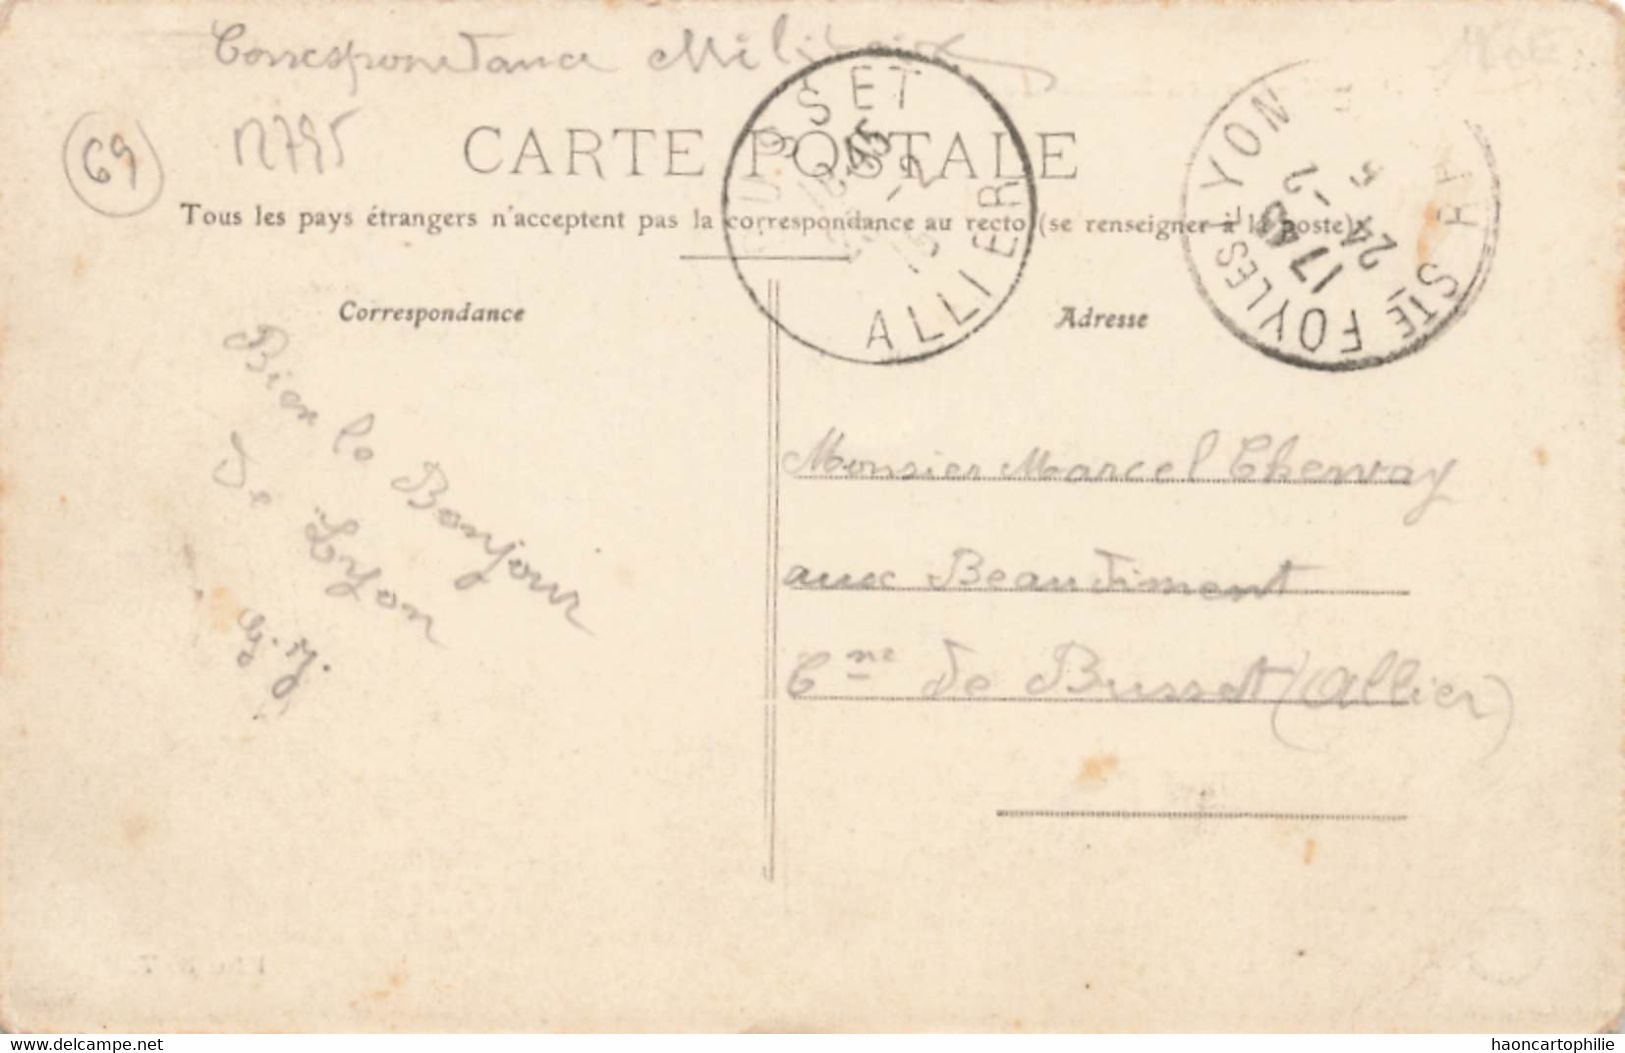 Correspondance Militaire
69
12795
CARTE POSTALE
Tous les pays étrangers n'acceptent pas la correspondance au recto (se renseigner à la poste)
BUSSET
ALLIER
STE FOY LES LYON
17 45
24 - 2
Correspondance
Adresse
Bien le Bonjour
de Lyon
G. J.
Monsieur Marcel Chervay
aux Beaudiment
Cne de Busset (Allier)
Delcampe.net
haoncartophilie